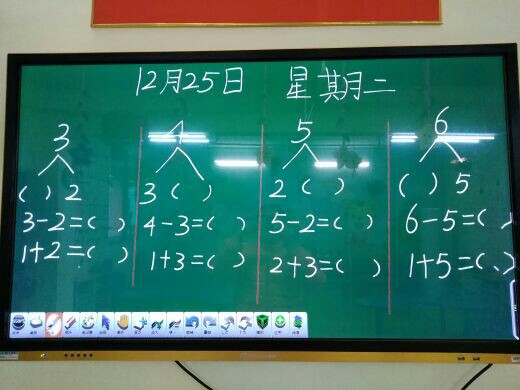 12月25日 星期二
3 4 5 6
( ) 2 3 ( ) 2 ( ) ( ) 5
3-2=( ) 4-3=( ) 5-2=( ) 6-5=( )
1+2=( ) 1+3=( ) 2+3=( ) 1+5=( )